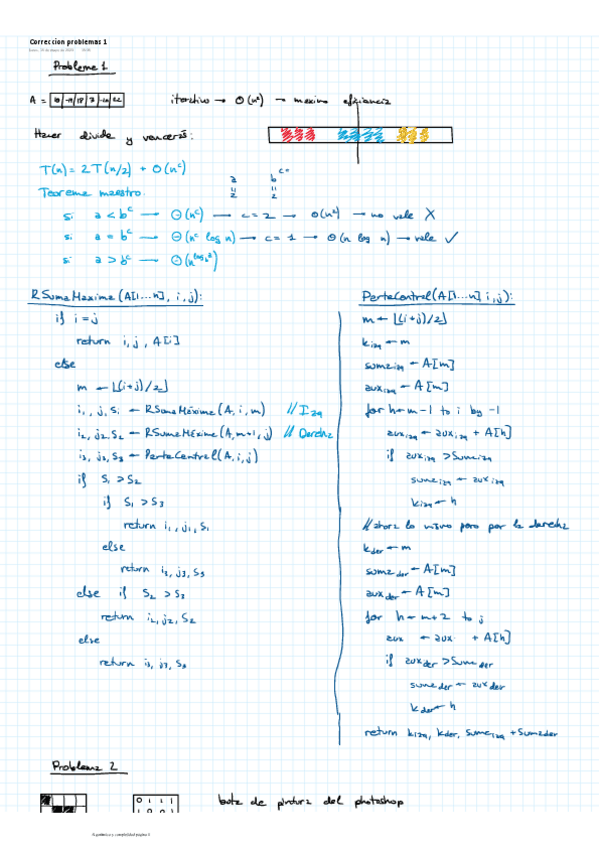 Correccion problemas 1
Problema 1
A =
iterativo → O(n²) → maxima eficiencia
Hacer divide y vencerás:
T(n) = 2T(n/2) + O(nᶜ)
Teorema maestro.
a b
= =
2 2
si a < bᶜ → Θ(nᶜ) → c = 2 → O(n²) → no vale X
si a = bᶜ → Θ(nᶜ log n) → c = 1 → Θ(n log n) → vale ✓
si a > bᶜ →
RSumaMaxima(A[1...n], i, j):
if i = j
return i, j, A[i]
else
m ← ⌊(i+j)/2⌋
i₁, j₁, S₁ ← RSumaMáxima(A, i, m) // Izq
i₂, j₂, S₂ ← RSumaMáxima(A, m+1, j) // Derecha
i₃, j₃, S₃ ← ParteCentral(A, i, j)
if S₁ > S₂
if S₁ > S₃
return i₁, j₁, S₁
else
return i₃, j₃, S₃
else if S₂ > S₃
return i₂, j₂, S₂
else
return i₃, j₃, S₃
ParteCentral(A[1...n] i, j):
m ← ⌊(i+j)/2⌋
kizq ← m
sumaizq ← A[m]
auxizq ← A[m]
for h ← m-1 to i by -1
auxizq ← auxizq + A[h]
if auxizq > Sumaizq
sumaizq ← auxizq
kizq ← h
// ahora lo mismo pero por la derecha
kder ← m
sumader ← A[m]
auxder ← A[m]
for h ← m+2 to j
aux ← aux + A[h]
if auxder > Sumader
sumader ← auxder
kder ← h
return kizq, kder, Sumaizq + Sumader
Problema 2
0 1 1 1
bote de pintura del photoshop